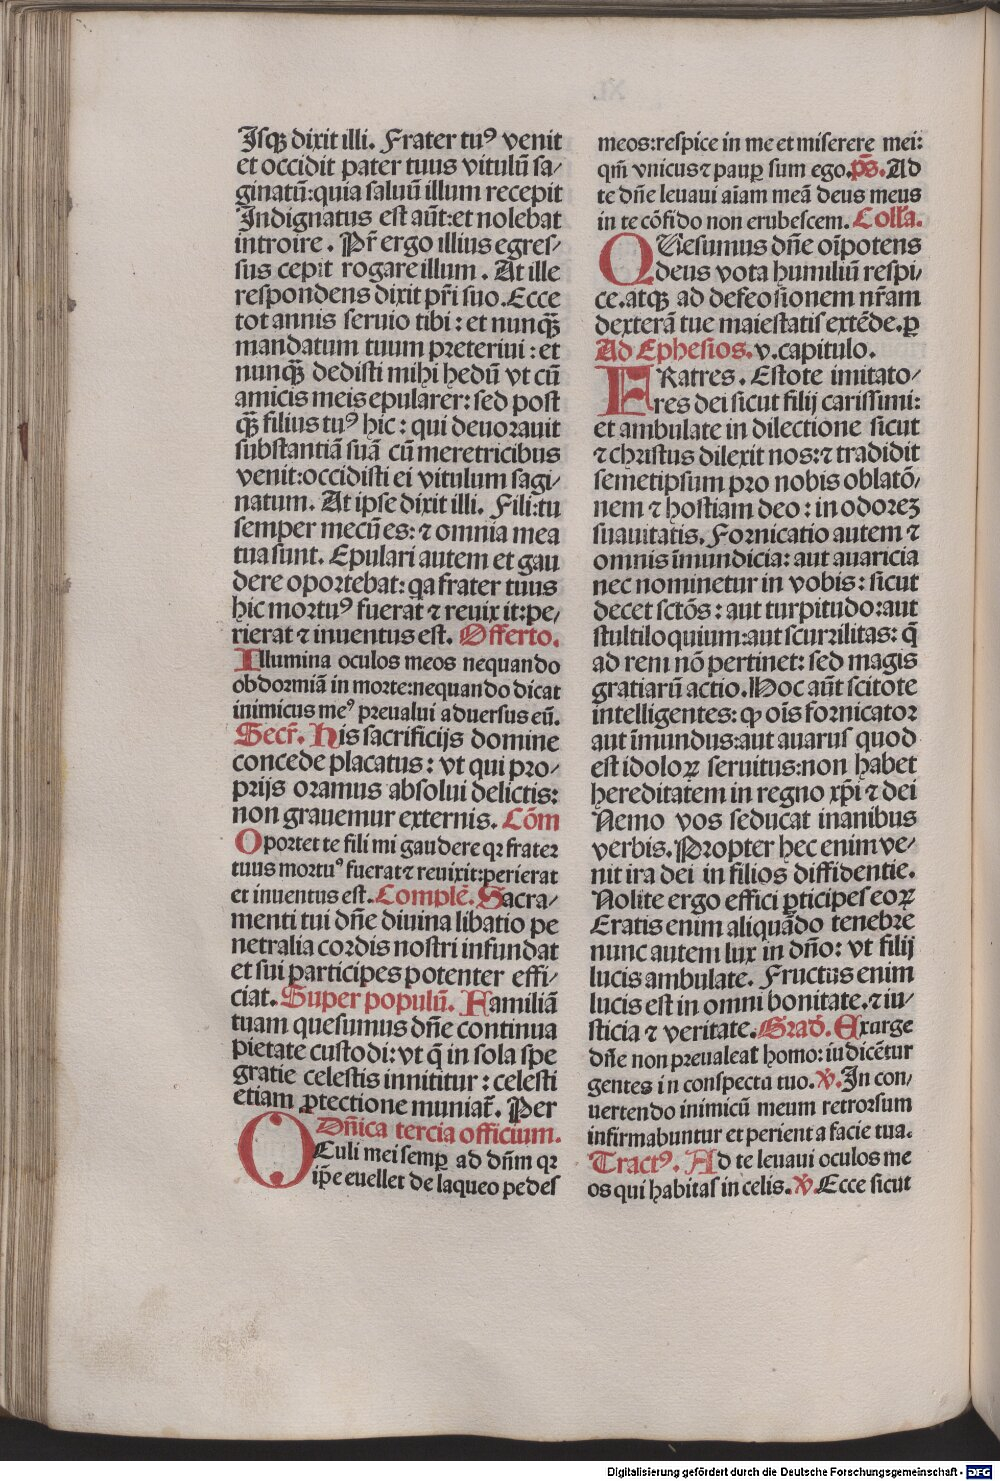 Isqꝫ dixit illi. Frater tuꝰ venit
et occidit pater tuus vitulū sa⸗
ginatū:quia saluū illum recepit
Indignatus est aūt:et nolebat
introire. Pr̄ ergo illius egres⸗
sus cepit rogare illum. At ille
respondens dixit pr̄i suo. Ecce
tot annis seruio tibi: et nunqꝫ̄
mandatum tuum preteriui: et
nunqꝫ̄ dedisti mihi hedū vt cū
amicis meis epularer: sed post
qꝫ̄ filius tuꝰ hic: qui deuorauit
substantiā suā cū meretricibus
venit:occidisti ei vitulum sagi⸗
natum. At ipse dixit illi. Fili:tu
semper mecū es: ⁊ omnia mea
tua sunt. Epulari autem et gau
dere oportebat: qa frater tuus
hic mortuꝰ fuerat ⁊ reuix it:pe⸗
rierat ⁊ inuentus est. Offerto.
Illumina oculos meos nequando
obdormiā in morte:nequando dicat
inimicus meꝰ preualui aduersus eū.
Secr̄. His sacrificijs domine
concede placatus: vt qui pro⸗
prijs oramus absolui delictis:
non grauemur externis. Cōm
Oportet te fili mi gaudere qꝛ frater
tuus mortuꝰ fuerat ⁊ reuixit:perierat
et inuentus est. Complē. Sacra⸗
menti tui dn̄e diuina libatio pe
netralia cordis nostri infundat
et sui participes potenter effi⸗
ciat. Super populū. Familiā
tuam quesumus dn̄e continua
pietate custodi: vt q̄ in sola spe
gratie celestis innititur: celesti
etiam ꝓtectione muniat̄. Per
Dn̄ica tercia officium.
OCuli mei semꝑ ad dn̄m qꝛ
ip̄e euellet de laqueo pedes
meos:respice in me et miserere mei:
qm̄ vnicus ⁊ pauꝑ sum ego. ps̄. Ad
te dn̄e leuaui aīam meā deus meus
in te cōfido non erubescem. Coll̄a.
QUesumus dn̄e oīpotens
deus vota humiliū respi⸗
ce. atqꝫ ad defeosionem nr̄am
dexterā tue maiestatis extēde. ꝑ
Ad Ephesios. v. capitulo.
FRatres. Estote imitato⸗
res dei sicut filij carissimi:
et ambulate in dilectione sicut
⁊ christus dilexit nos: ⁊ tradidit
semetipsum pro nobis oblatō⸗
nem ⁊ hostiam deo: in odorē
suauitatis. Fornicatio autem ⁊
omnis īmundicia: aut auaricia
nec nominetur in vobis: sicut
decet sctōs: aut turpitudo:aut
stultiloquium:aut scurrilitas: q̄
ad rem nō pertinet: sed magis
gratiarū actio. Hoc aūt scitote
intelligentes: ꝙ oīs fornicator
aut īmundus:aut auarus quod
est idoloꝝ seruitus:non habet
hereditatem in regno xp̄i ⁊ dei
Nemo vos seducat inanibus
verbis. Propter hec enim ve⸗
nit ira dei in filios diffidentie.
Nolite ergo effici ꝑticipes eoꝝ
Eratis enim aliquādo tenebre
nunc autem lux in dn̄o: vt filij
lucis ambulate. Fructus enim
lucis est in omni bonitate. ⁊ iu⸗
sticia ⁊ veritate. Grad̄. Exurge
dn̄e non preualeat homo: iudicētur
gentes in conspectu tuo. ℣. In con⸗
uertendo inimicū meum retrorsum
infirmabuntur et perient a facie tua.
Tractꝰ. Ad te leuaui oculos me
os qui habitas in celis. ℣. Ecce sicut
Digitalisierung gefördert durch die Deutsche Forschungsgemeinschaft - DFG